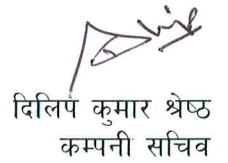 दिलिप कुमार श्रेष्ठ
कम्पनी सचिव